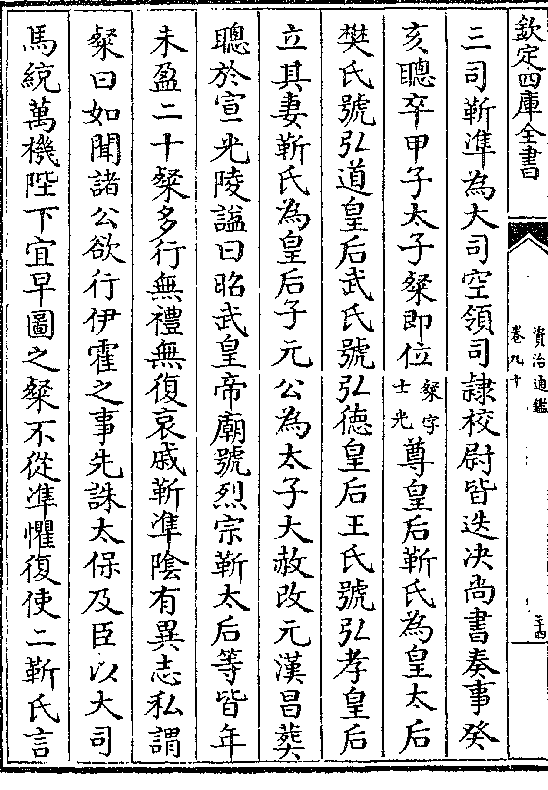 欽定四庫全書
資治通鑑
卷九十
三十四
三司靳準為大司空領司隸校尉皆迭决尚書奏事癸
亥聰卒甲子太子粲即位粲字士光尊皇后靳氏為皇太后
樊氏號弘道皇后武氏號弘德皇后王氏號弘孝皇后
立其妻靳氏為皇后子元公為太子大赦改元漢昌葬
聰於宣光陵謚曰昭武皇帝廟號烈宗靳太后等皆年
未盈二十粲多行無禮無復哀戚靳準陰有異志私謂
粲曰如聞諸公欲行伊霍之事先誅太保及臣以大司
馬統萬機陛下宜早圖之粲不從準懼復使二靳氏言